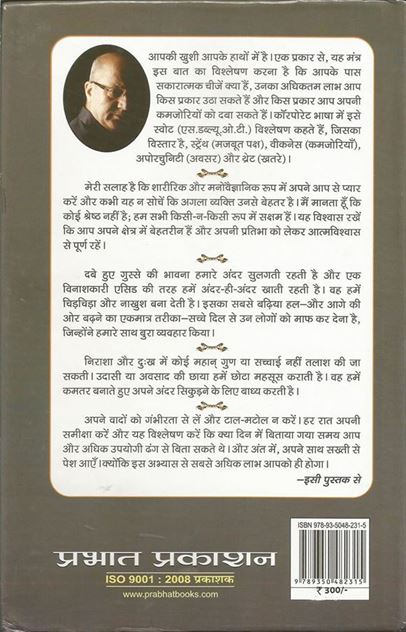 आपकी खुशी आपके हाथों में है। एक प्रकार से, यह मंत्र
इस बात का विश्लेषण करना है कि आपके पास
सकारात्मक चीजें क्या हैं, उनका अधिकतम लाभ आप
किस प्रकार उठा सकते हैं और किस प्रकार आप अपनी
कमजोरियों को दबा सकते हैं। कॉरपोरेट भाषा में इसे
स्वोट (एस.डब्ल्यू.ओ.टी.) विश्लेषण कहते हैं, जिसका
विस्तार है, स्ट्रेंथ (मजबूत पक्ष), वीकनेस (कमजोरियाँ),
अपोरचुनिटी (अवसर) और थ्रेट (खतरे)।
मेरी सलाह है कि शारीरिक और मनोवैज्ञानिक रूप में अपने आप से प्यार
करें और कभी यह न सोचें कि अगला व्यक्ति उनसे बेहतर है। मैं मानता हूँ कि
कोई श्रेष्ठ नहीं है; हम सभी किसी-न-किसी रूप में सक्षम हैं। यह विश्वास रखें
कि आप अपने क्षेत्र में बेहतरीन हैं और अपनी प्रतिभा को लेकर आत्मविश्वास
से पूर्ण रहें।
दबे हुए गुस्से की भावना हमारे अंदर सुलगती रहती है और एक
विनाशकारी एसिड की तरह हमें अंदर-ही-अंदर खाती रहती है। वह हमें
चिड़चिड़ा और नाखुश बना देती है। इसका सबसे बढ़िया हल—और आगे की
ओर बढ़ने का एकमात्र तरीका—सच्चे दिल से उन लोगों को माफ कर देना है,
जिन्होंने हमारे साथ बुरा व्यवहार किया।
निराशा और दुःख में कोई महान् गुण या सच्चाई नहीं तलाश की जा
सकती। उदासी या अवसाद की छाया हमें छोटा महसूस कराती है। वह हमें
कमतर बनाते हुए अपने अंदर सिकुड़ने के लिए बाध्य करती है।
अपने वादों को गंभीरता से लें और टाल-मटोल न करें। हर रात अपनी
समीक्षा करें और यह विश्लेषण करें कि क्या दिन में बिताया गया समय आप
और अधिक उपयोगी ढंग से बिता सकते थे। और अंत में, अपने साथ सख्ती से
पेश आएँ। क्योंकि इस अभ्यास से सबसे अधिक लाभ आपको ही होगा।
—इसी पुस्तक से
प्रभात प्रकाशन
ISO 9001 : 2008 प्रकाशक
www.prabhatbooks.com
ISBN 978-93-5048-231-5
9 789350 482315
₹ 300/-